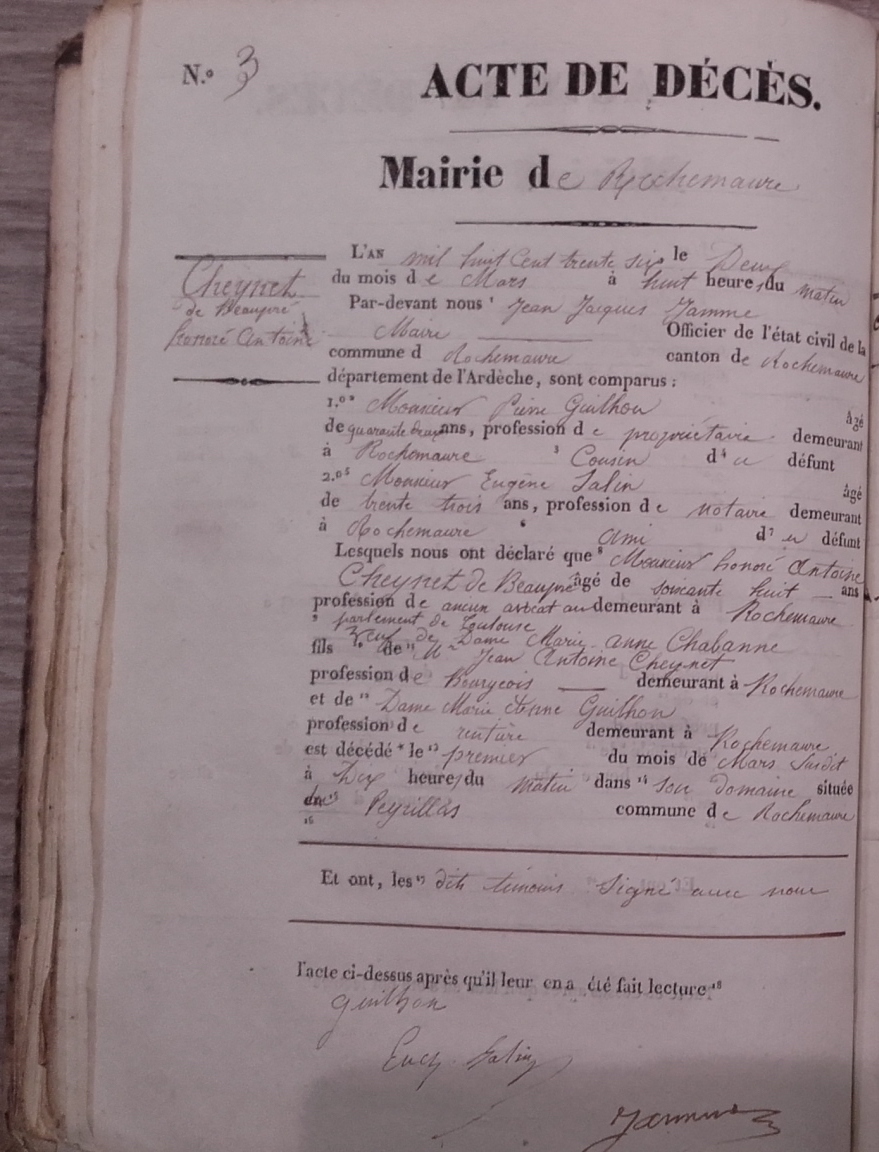 N.o 3
ACTE DE DÉCÈS.
Mairie de Rochemaure
Cheynet
de Beaupré
honoré Antoine
L'AN mil huit Cent trente six le Deux
du mois de Mars à huit heures du matin
Par-devant nous 1 Jean Jacques Jamme
Maire Officier de l'état civil de la
commune d Rochemaure canton de Rochemaure
département de l'Ardèche, sont comparus :
1.o 2 Monsieur Pierre Guilhon âgé
de quarante deux ans, profession de propriétaire demeurant
à Rochemaure 3 Cousin d 4 u défunt
2.o 5 Monsieur Eugène Salin âgé
de trente trois ans, profession de notaire demeurant
à Rochemaure 6 ami d 7 u défunt
Lesquels nous ont déclaré que 8 Monsieur honoré Antoine
Cheynet de Beaupré âgé de soixante huit ans
profession de ancien avocat au demeurant à Rochemaure
9 parlement de Toulouse
veuf de Dame Marie anne Chabanne
fils 10 de 11 Mr Jean Antoine Cheynet
profession de Bourgeois demeurant à Rochemaure
et de 12 Dame Marie Guilhon
profession de rentière demeurant à Rochemaure
est décédé le 13 premier du mois de Mars Susdit
à Dix heures du matin dans 14 son domaine située
15 Peyrillas commune de Rochemaure
16
Et ont, les 17 dits témoins Signé avec nous
l'acte ci-dessus après qu'il leur en a été fait lecture 18
Guilhon
Eug. Salin
Jamme